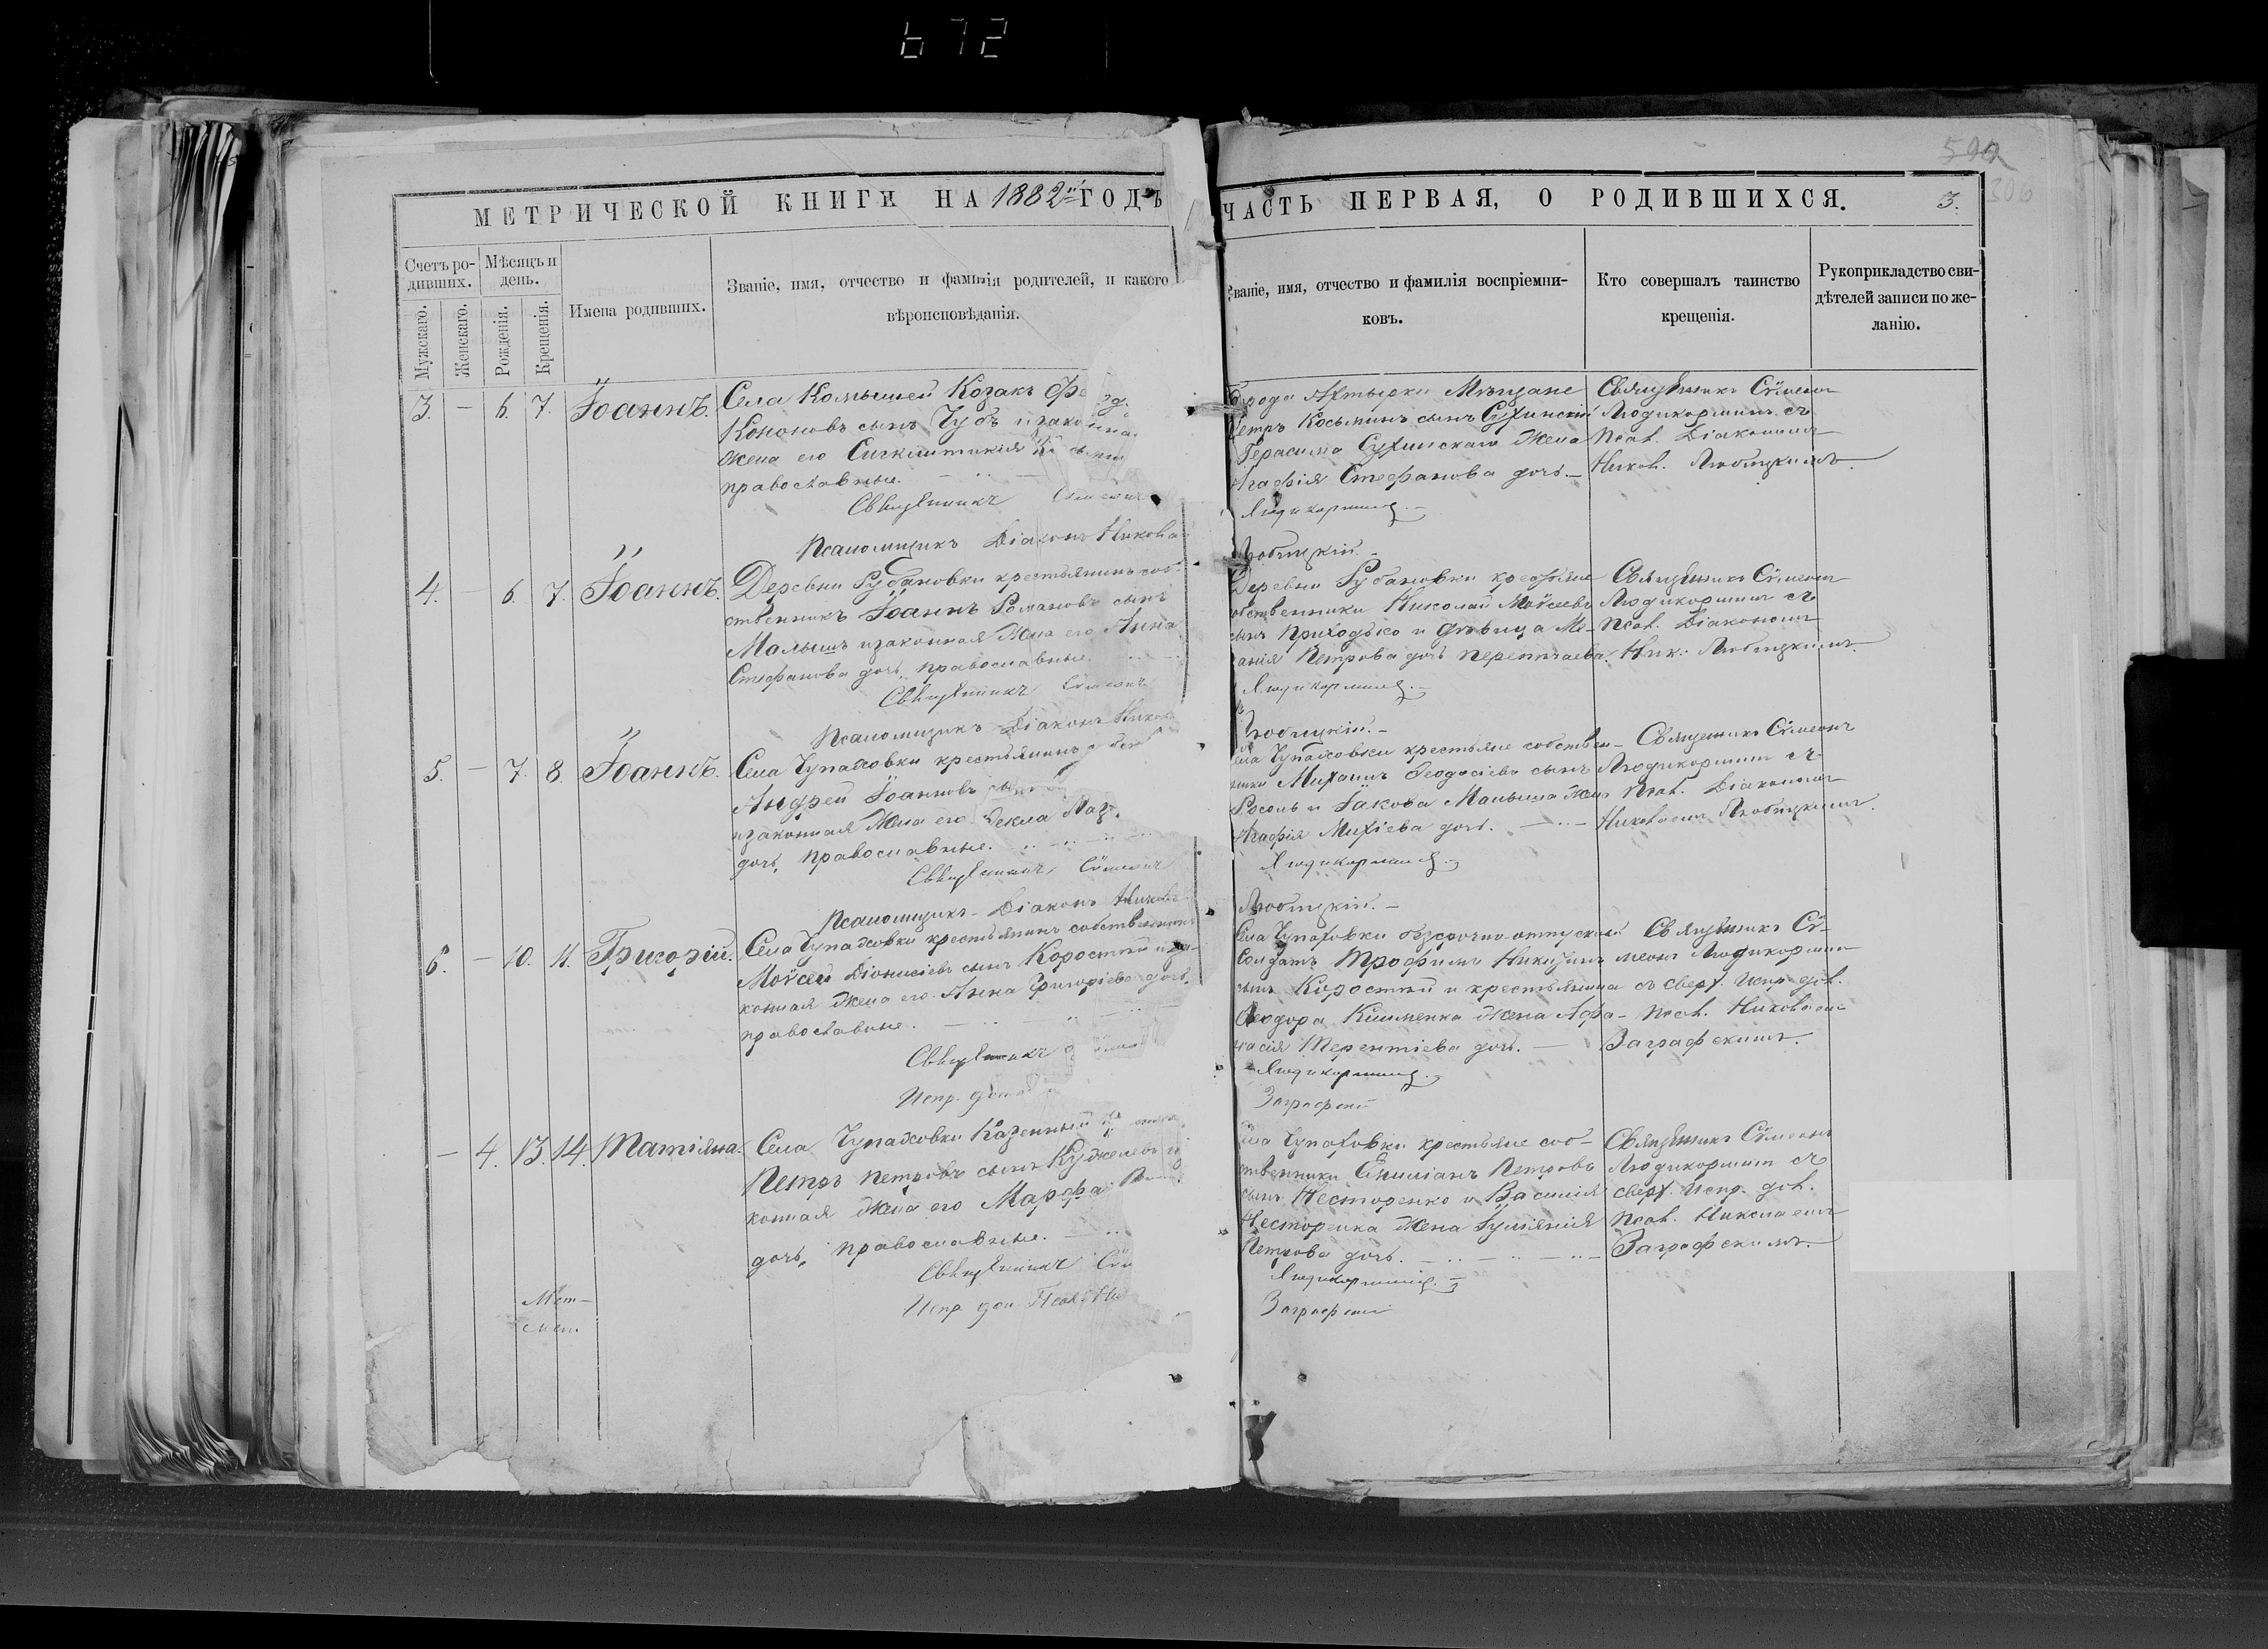 672
592
306
МЕТРИЧЕСКОЙ КНИГИ НА 1882й ГОДЪ
ЧАСТЬ ПЕРВАЯ, О РОДИВШИХСЯ.
3.
Счетъ ро-
дивших.
Мѣсяцъ и
день.
Мужскаго.
Женскаго.
Рожденія.
Крещенія.
Имена родивших.
Званіе, имя, отчество и фамилія родителей, и какого
вѣроисповѣданія.
Званіе, имя, отчество и фамилія воспріемни-
ковъ.
Кто совершалъ таинство
крещенія.
Рукоприкладство сви-
дѣтелей записи по же-
ланію.
3. — 6. 7. Іоаннъ.
Села Комышей Козакъ
Кононовъ сынъ Чубъ и законная
жена его Сигклитикія
православные.
Священникъ Сѵмеонъ
Псаломщикъ Діаконъ Никола
Города Ахтырки Мѣщане
Петръ Косьминъ сынъ Сухинскій
Герасима Сухинскаго жена
Агафія Стефанова дочь. —
Людикорминъ. —
Любицкій. —
Священникъ Сѵмеонъ
Людикорминъ съ
Псал. Діакономъ
Никол. Любицкимъ.
4. — 6. 7. Іоаннъ.
Деревни Рубановки крестьянинъ соб-
ственникъ Іоаннъ Романовъ сынъ
Малышъ и законная жена его Анна
Стефанова дочь, православные.
Священникъ Сѵмеонъ
Псаломщикъ Діаконъ Никол
Деревни Рубановки крестьяне
собственники Николай Моѵсеевъ
сынъ Приходько и дѣвица Ме-
ланія Петрова дочь
Людикорминъ. —
Любицкій. —
Священникъ Сѵмеонъ
Людикорминъ съ
Псал. Діакономъ
Ник. Любицкимъ.
5. — 7. 8. Іоаннъ.
Села Чупаховки крестьянинъ
Андрей Іоанновъ сынъ
и законная жена его Ѳекла
дочь, православные.
Священникъ Сѵмеонъ
Псаломщикъ Діаконъ Никола
Села Чупаховки крестьяне собствен-
ники Михаилъ Ѳеодосіевъ сынъ
и Іакова Малыша жена
Агафія дочь. —
Людикорминъ. —
Любицкій. —
Священникъ Сѵмеонъ
Людикорминъ съ
Псал. Діакономъ
Николаемъ Любицкимъ.
6. — 10. 11. Григорій.
Села Чупаховки крестьянинъ собственникъ
Моѵсей Діонисіевъ сынъ Коростій и за-
конная жена его Анна Григоріева дочь,
православные.
Священникъ
Испр. дол
Села Чупаховки безсрочно-отпускной
Солдатъ Трофимъ сынъ
Коростій и крестьянина
Ѳеодора Клименка жена Афа-
насія Терентіева дочь. —
Людикорминъ. —
Заграфскій
Священникъ Сѵ-
меонъ Людикорминъ
съ сверх. испр. дол.
Псал. Николаемъ
Заграфскимъ.
— 4. 13. 14. Татіана.
Села Чупаховки Казенный
Петръ Петровъ сынъ
конная жена его Марфа
дочь, православные.
Священникъ Сѵм
Испр. дол. Псал. Ни
Села Чупаховки крестьяне соб-
ственники Емиліанъ Петровъ
сынъ Несторенко и Василія
Несторенка жена Іуліанія
Петрова дочь.
Людикорминъ. —
Заграфскій
Священникъ Сѵмеонъ
Людикорминъ съ
сверх. испр. дол.
Псал. Николаемъ
Заграфскимъ.